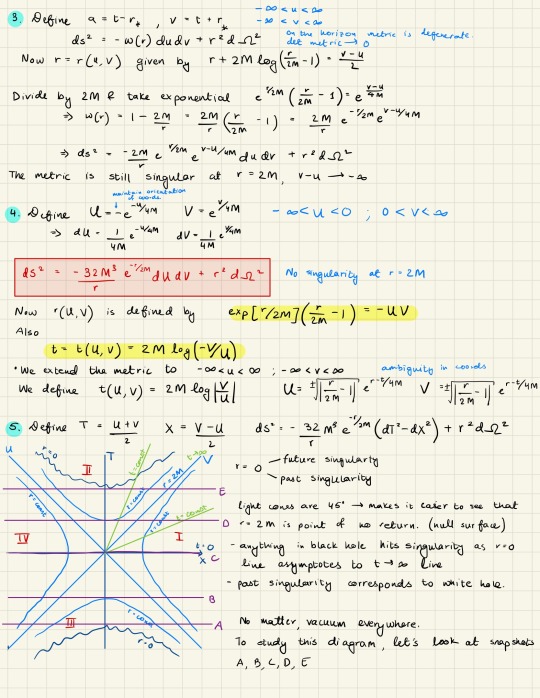 3. Define u = t - r* , v = t + r* -∞ < u < ∞
-∞ < v < ∞
ds² = -w(r) du dv + r² dΩ² on the horizon metric is degenerate.
det metric → 0
Now r = r(u,v) given by r + 2M log(r/2M - 1) = (v-u)/2
Divide by 2M & take exponential e^{r/2M} (r/2M - 1) = e^{(v-u)/4M}
⇒ w(r) = 1 - 2M/r = 2M/r (r/2M - 1) = 2M/r e^{-r/2M} e^{v-u/4M}
⇒ ds² = -2M/r e^{r/2M} e^{v-u/4M} du dv + r² dΩ²
The metric is still singular at r = 2M, v-u → -∞
maintain orientation
of coords
4. Define U = -e^{-u/4M} V = e^{v/4M} -∞ < U < 0 ; 0 < V < ∞
⇒ dU = 1/4M e^{-u/4M} dV = 1/4M e^{v/4M}
ds² = -32M³/r e^{-r/2M} dU dV + r² dΩ² No singularity at r = 2M
Now r(U,V) is defined by exp[r/2M] (r/2M - 1) = -UV
Also
t = t(U,V) = 2M log(-V/U)
• We extend the metric to -∞ < U < ∞ ; -∞ < V < ∞ ambiguity in coords
We define t(U,V) = 2M log|V/U| U = ±√|r/2M - 1| e^{r-t/4M} V = ±√|r/2M - 1| e^{r-t/4M}
5. Define T = (U+V)/2 X = (V-U)/2 ds² = -32M³/r e^{-r/2M} (dT² - dX²) + r² dΩ²
r = 0 future singularity
past singularity
U
r=0
II
T
t=const
t→∞
V
r=2M
E
r=const
r=const
t=const
D
IV
I
t=0
X
C
B
r=const
III
A
r=0
light cones are 45° → makes it easier to see that
r = 2M is point of no return. (null surface)
- anything in black hole hits singularity as r=0
line asymptotes to t → ∞ line
- past singularity corresponds to white hole.
No matter, vacuum everywhere.
To study this diagram, let's look at snapshots
A, B, C, D, E